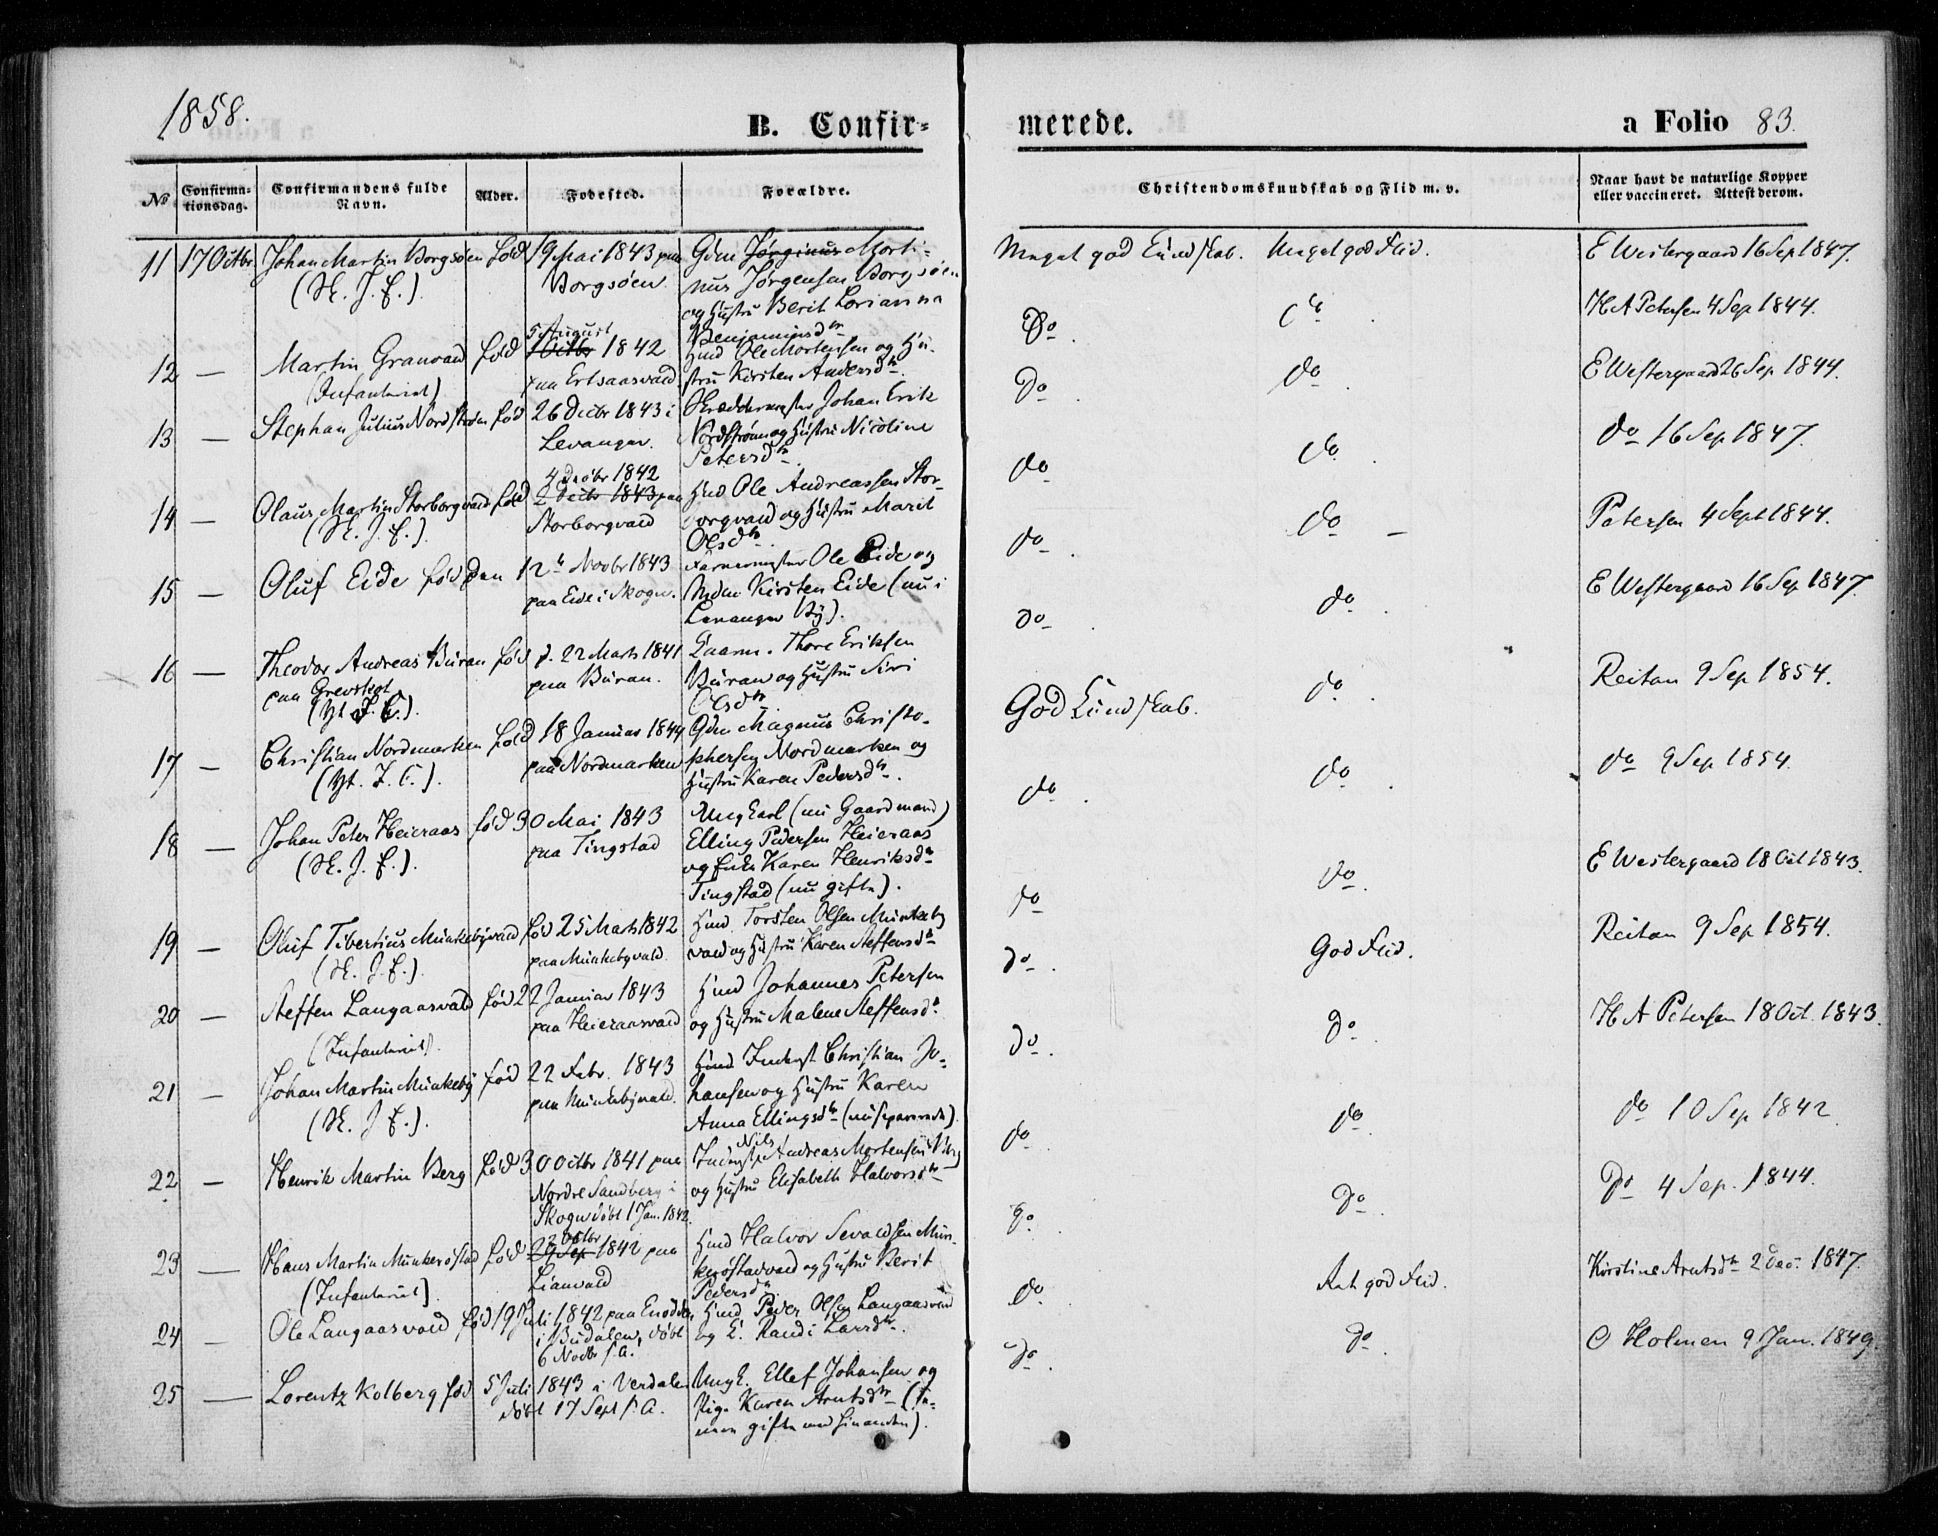 1858.
B. Confir=
merede.
a Folio 83.
No
Confirma=
tionsdag.
Confirmandens fulde
Navn.
Alder.
Fødested.
Forældre.
Christendomskundskab og Flid m. v.
Naar havt de naturlige Kopper
eller vaccineret. Attest derom.
11 17 Octbr. Johan Martin Borgsøen fød 19 Mai 1843 paa Gdm Jørginus Morti-
(N. J. C.). Borgsøen nus Jørgensen Borgsøen
og Hustru Berit Lorianna
Benjaminsdtr
Meget god Kundskab. Meget god Flid. E Westergaard 16 Sep 1847.
12 — Martin Granvad fød 5 August 1 Octbr 1842 Hmd Ole Mortensen og Hu-
(Infanterist) paa Ertsaasvald stru Kirsten Andersdtr.
Do. do. H A Petersen 4 Sep 1844.
13 — Stephan Julius Nordstrøm fød 26 Decbr 1843 i Skræddermester Johan Erik
Levanger. Nordstrøm og Hustru Nicoline
Petersdtr.
Do. do. E Westergaard 26 Sep 1844.
14 — Olaus Martin Storborgvald fød 4 Decbr 1842 2 Decbr 1843 paa Hmd Ole Andreassen Stor-
(N. J. C.). Storborgvald borgvald og Hustru Marit
Olsdtr.
do. do. do 16 Sep 1847.
15 — Oluf Eide fød den 12te Novbr 1843 Ole Eide og
paa Eide i Skogn. Mdm Kirsten Eide (nu i
Levanger By).
do. do — Petersen 4 Sept 1844.
16 — Theodor Andreas Buran fød d. 22 Marts 1841 Gaarm. Thore Eriksen
paa Grevskot paa Buran. Buran og Hustru Siri
(Yt. J. C.). Olsdtr.
do. do. E Westergaard 16 Sep 1847.
17 — Christian Nordmarken fød 18 Januar 1844 Gdm Magnus Christo-
(Yt. J. C.). paa Nordmarken phersen Nordmarken og
Hustru Karen Pedersdtr.
God Kundskab. do. Reitan 9 Sep 1854.
18 — Johan Peter Heieraas fød 30 Mai 1843 Ung Karl (nu Gaardmand)
(N. J. C.). paa Tingstad Elling Pedersen Heieraas
og Enke Karen Henriksdtr
Tingstad (nu gifte).
do. do. do 9 Sep 1854.
19 — Oluf Tibertius Munkebyvald fød 25 Marts 1842 Hmd Torsten Olsen Munkeby
(N. J. C.). paa Munkebyvald. vald og Hustru Karen Steffensdtr
do do. E Westergaard 18 Oct 1843.
20 — Steffen Langaasvald fød 22 Januar 1843 Hmd Johannes Petersen
(Infanterist). paa Heieraasvald og Hustru Malene Steffensdtr
do. God Flid. Reitan 9 Sep 1854.
21 — Johan Martin Munkeby fød 22 Febr. 1843 Hmd Inderst Christian Jo-
(N. J. C.). paa Munkebyvald. hansen og Hustru Karen
Anna Ellingsdtr (nu separerede).
do. do. H A Petersen 18 Oct. 1843.
22 — Henrik Martin Berg fød 30 Octbr 1841 paa Inderst Nils Andreas Mortensen Berg
Nordre Sandberg i og Hustru Elisabeth Halvorsdtr
Skogn døbt 1 Jan. 1842.
do. do. do 10 Sep 1842.
23 — Hans Martin Munkerøstad fød 2 Octbr 29 Sep 1842 paa Hmd Halvor Sevaldsen Mun-
(Infanterist). Lianvald kerøstadvald og Hustru Berit
Pedersdtr.
do. do. Do 4 Sep. 1844.
24 — Ole Langaasvald fød 19 Juli 1842 paa Enodden Hmd Peder Olsen Langaasvald
i Budalen, døbt og E. Randi Larsdtr.
6 Novbr s. A.
do. Ret god Flid. Kirstine Arntsdtr 2 Dec. 1847.
25 — Lorentz Kolberg fød 5 Juli 1843 i Verdalen Ung K. Ellef Johansen og
døbt 17 Sept s. A. Pige Karen Arntsdtr (
gifte med hinanden).
do. do. O Holmen 9 Jan. 1849.